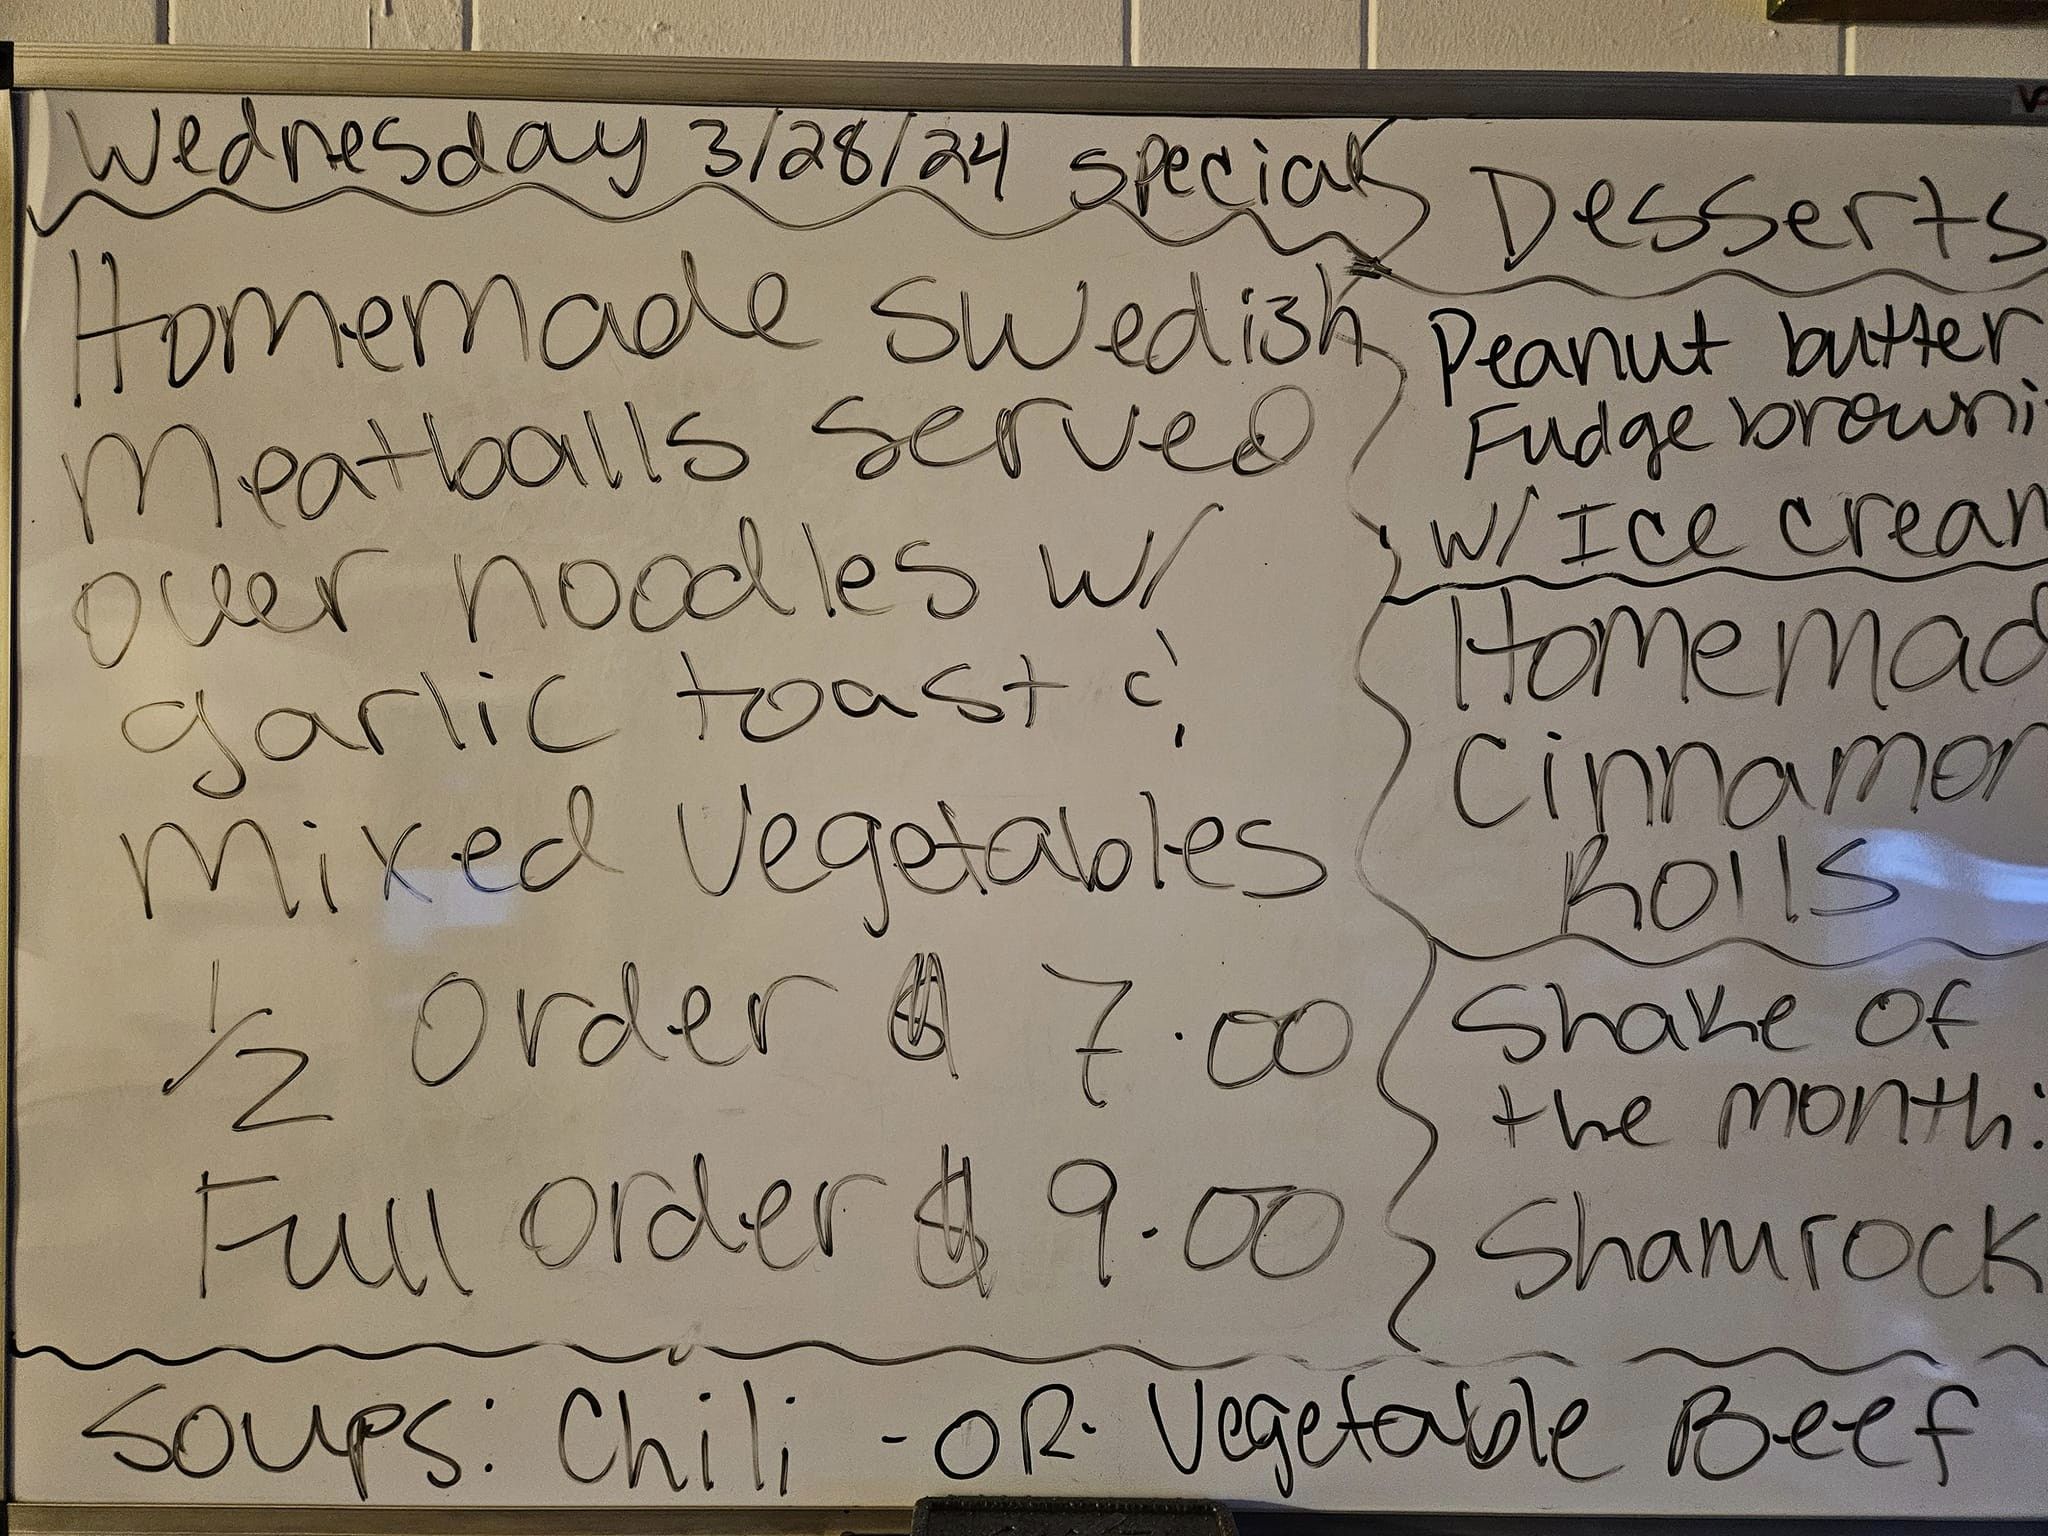 Wednesday 3/28/24 special
Homemade Swedish
Meatballs served
over noodles w/
garlic toast &
Mixed Vegetables
1/2 order $ 7.00
Full order $ 9.00
Desserts
Peanut butter
Fudge browni
w/ Ice cream
Homemad
Cinnamon
Rolls
Shake of
the month:
Shamrock
Soups: Chili -OR- Vegetable Beef